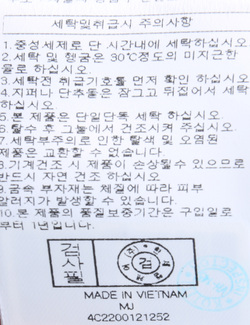 세탁및취급시 주의사항
1.중성세제로 단 시간내에 세탁하십시오
2.세탁 및 헹굼은 30℃정도의 미지근한
물로 하십시오
3.세탁전 취급기호를 먼저 확인 하십시오
4.지퍼나 단추등은 잠그고 뒤집어서 세탁
하십시오
5.본 제품은 단일단독 세탁 하십시오
6.탈수 후 그늘에서 건조시켜 주십시오
7.세탁부주의로 인한 탈색 및 오염된
제품은 교환할 수 없습니다
8.기계건조 시 제품이 손상될수 있으므로
반드시 자연 건조 하십시오
9.금속 부자재는 체질에 따라 피부
알러지가 발생할 수 있습니다.
10.본 제품의 품질보증기간은 구입일로
부터 1년입니다.
검사필
검
MADE IN VIETNAM
MJ
4C2200121252